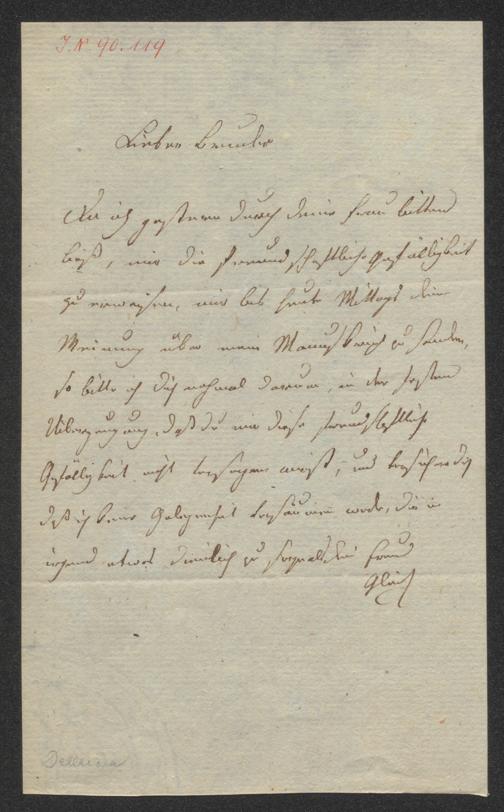 J. N 90.119
Lieber Bruder
Da ich gestern durch deine Frau bitten
ließ, mir die freundschaftliche Gefälligkeit
zu erweisen, mir bis heute Mittags deine
Meinung über mein Manuskript zu senden,
so bitte ich dich nochmal darum, in der festen
Überzeugung, daß du mir diese freundschaftliche
Gefälligkeit nicht versagen wirst, und versichere dich
daß ich keine Gelegenheit versäumen werde, dir in
irgend etwas dienlich zu sein als dein Freund
Gleich